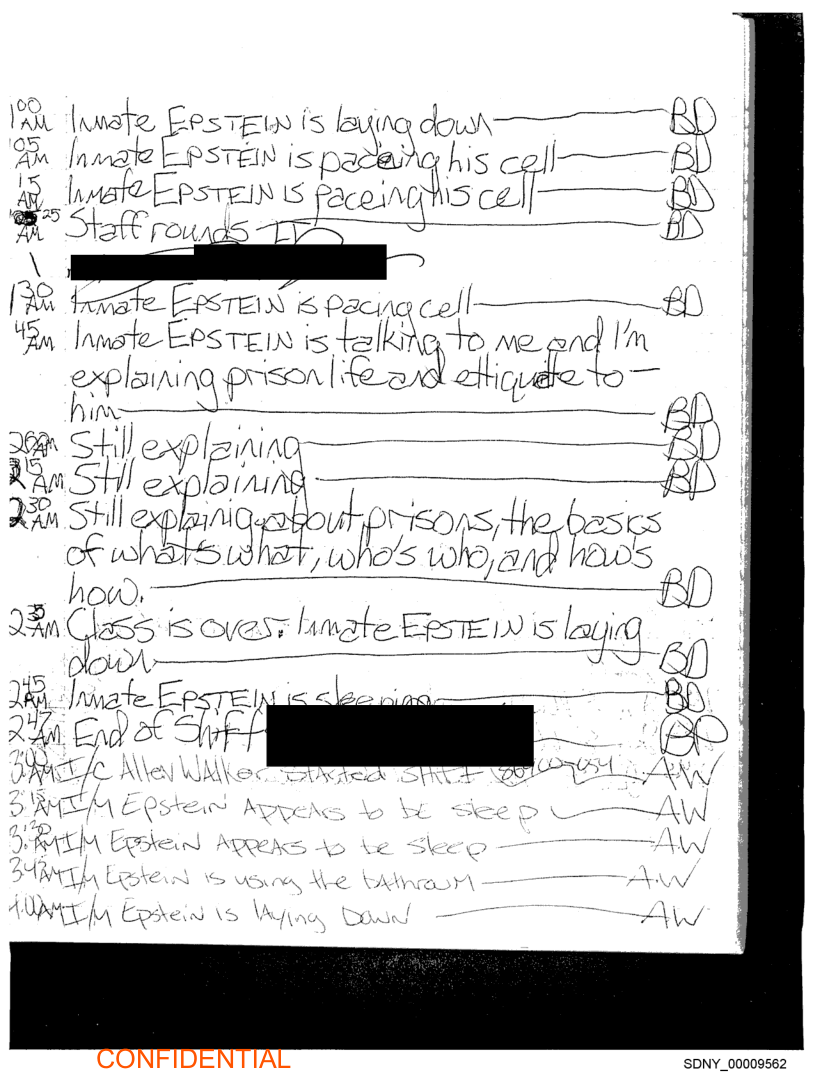 1 00 AM Inmate EPSTEIN is laying down BD
05 AM Inmate EPSTEIN is paceing his cell BD
15 AM Inmate EPSTEIN is paceing his cell BD
25 AM Staff rounds BD
1 30 AM Inmate EPSTEIN is pacing cell BD
45 AM Inmate EPSTEIN is talking to me and I'm
explaining prison life and ettiquite to
him BD
200 AM Still explaining BD
2 15 AM Still explaining BD
2 30 AM Still explainig about prisons, the basics
of what's what, who's who, and how's
how. BD
2 35 AM Class is over. Inmate EPSTEIN is laying
down BD
2 45 AM Inmate EPSTEIN is sleeping BD
2 47 AM End of Shift BD
3:00 AM I/C Allen Walker Started Shift AW
3:15 AM I/M Epstein Appears to be sleep AW
3:30 AM I/M Epstein Appears to be sleep AW
AM I/M Epstein is using the bathroum AW
4:00 AM I/M Epstein is laying Down AW
CONFIDENTIAL
SDNY_00009562